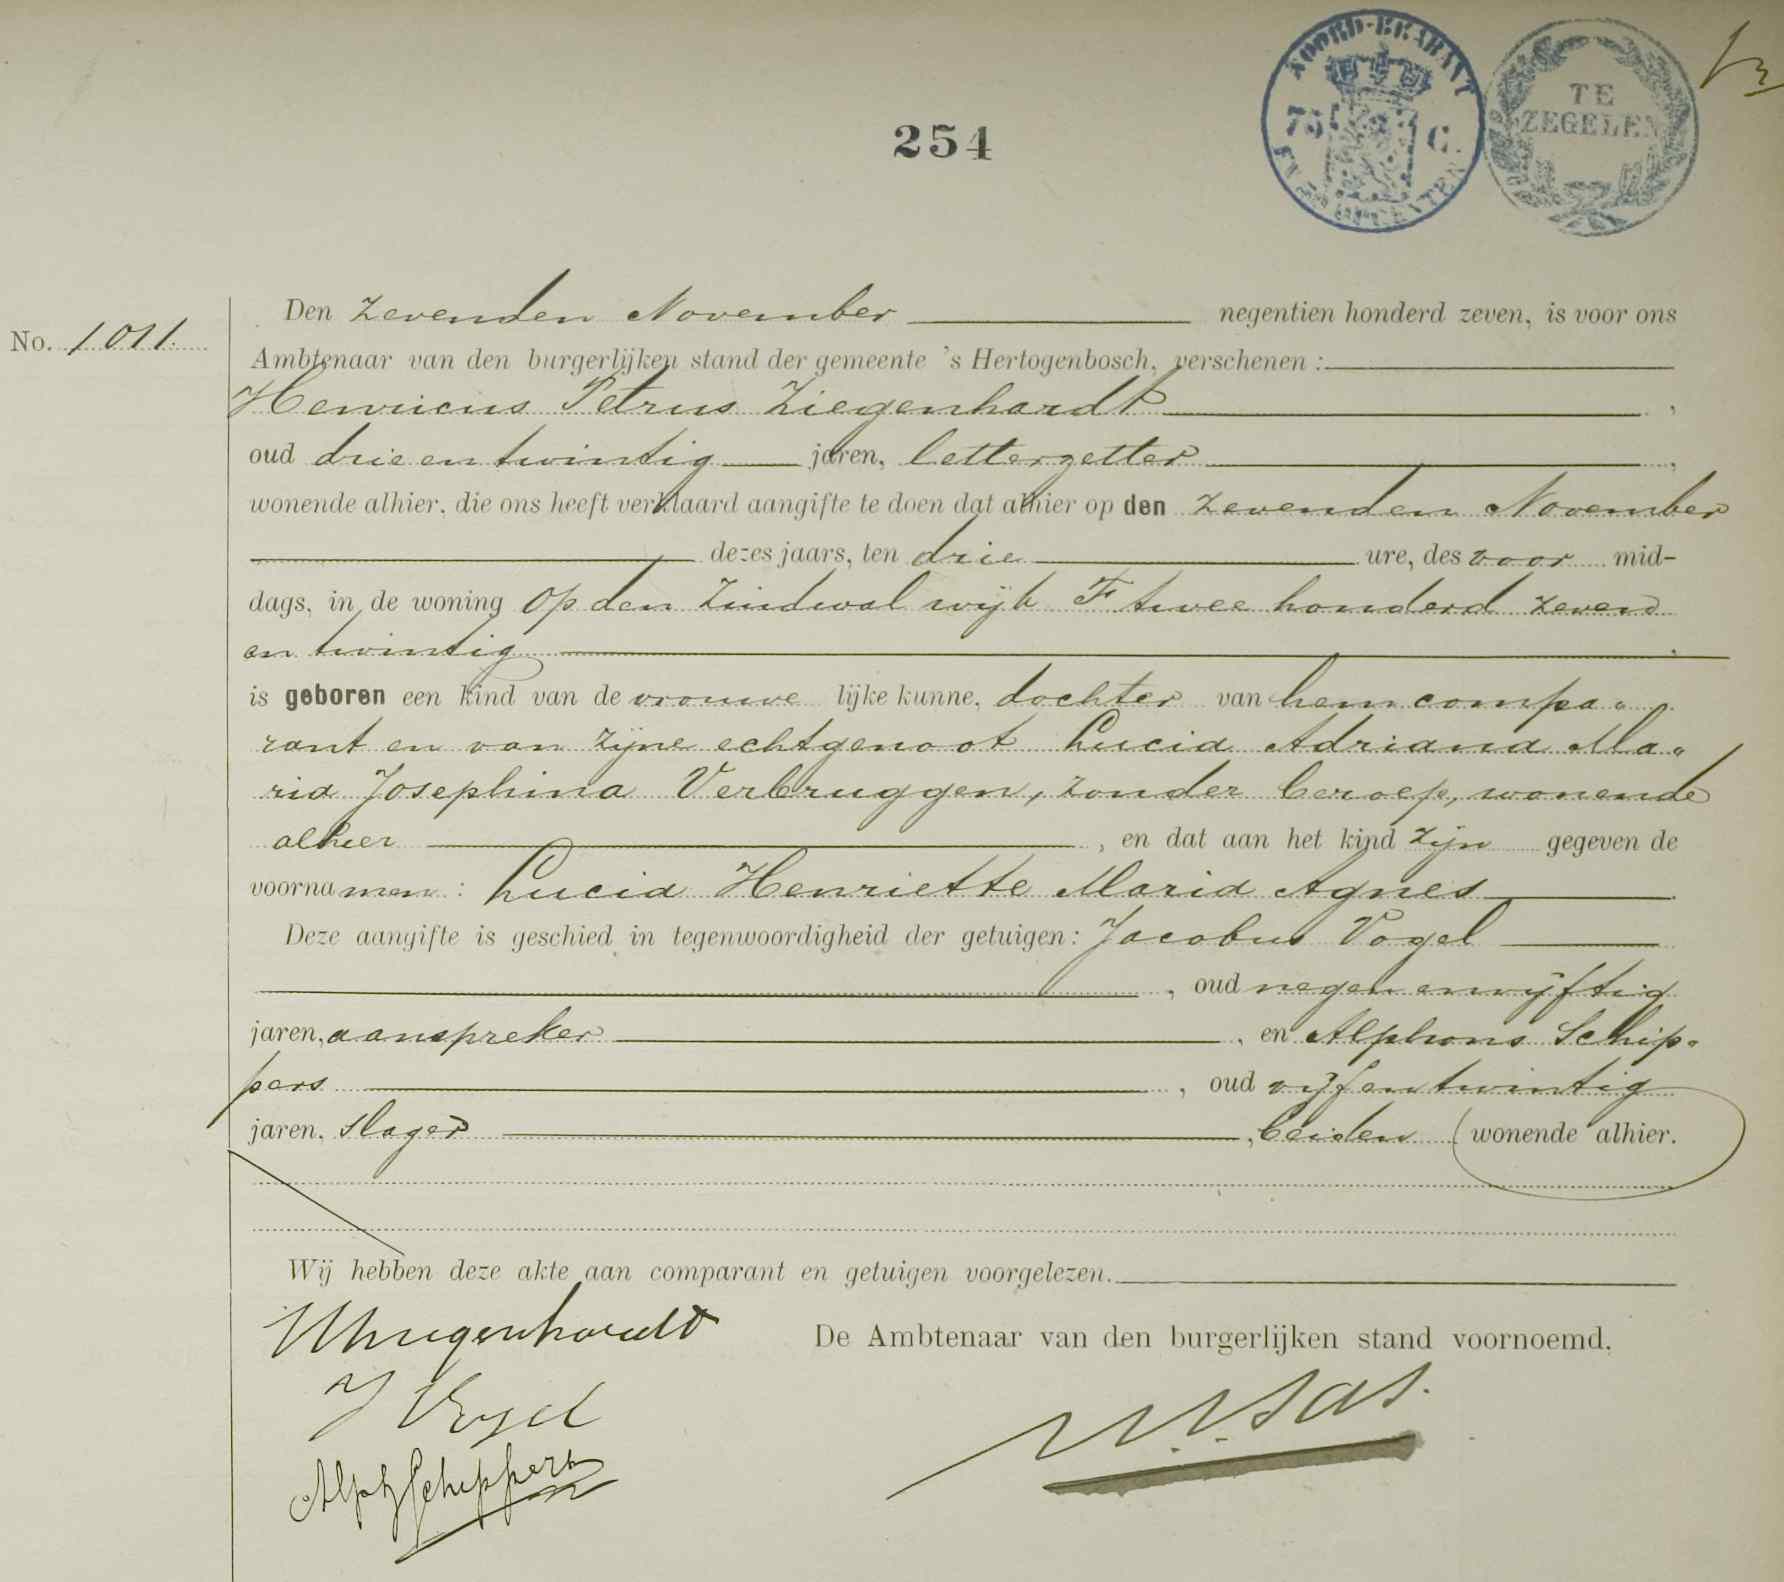 NOORD-BRABANT
75 C.
TE
ZEGELEN
254
No. 1011.
Den zevenden November negentien honderd zeven, is voor ons
Ambtenaar van den burgerlijken stand der gemeente 's Hertogenbosch, verschenen:
Henricus Petrus Ziegenhardt,
oud drie en twintig jaren, letterzetter,
wonende alhier, die ons heeft verklaard aangifte te doen dat alhier op den zevenden November
dezes jaars, ten drie ure, des voor mid-
dags, in de woning op den Zuidwal wijk F twee honderd zeven
en twintig
is geboren een kind van de vrouwe lijke kunne, dochter van hem compa„
rant en van zijne echtgenoot Lucia Adriana Ma„
ria Josephina Verbruggen, zonder beroep, wonende
alhier, en dat aan het kind zijn gegeven de
voorna men: Lucia Henriette Maria Agnes
Deze aangifte is geschied in tegenwoordigheid der getuigen: Jacobus Vogel
, oud negen en vijftig
jaren, aanspreker, en Alphons Schip„
pers, oud vijf en twintig
jaren, slager, beiden (wonende alhier.
Wij hebben deze akte aan comparant en getuigen voorgelezen.
De Ambtenaar van den burgerlijken stand voornoemd.
J Vogel
Alph Schippers